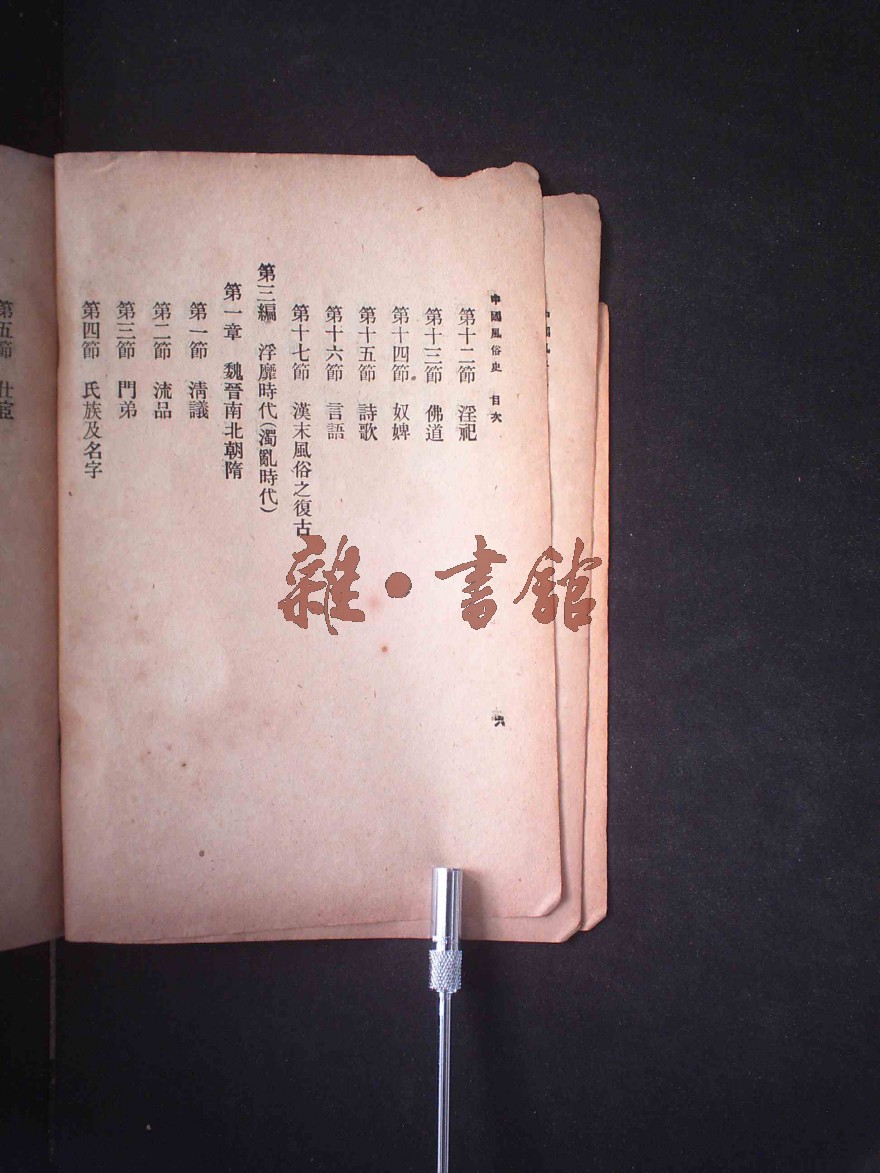 中國風俗史 目次
第十二節 淫祀
第十三節 佛道
第十四節 奴婢
第十五節 詩歌
第十六節 言語
第十七節 漢末風俗之復古
第三編 浮靡時代(濁亂時代)
第一章 魏晉南北朝隋
第一節 淸議
第二節 流品
第三節 門弟
第四節 氏族及名字
第五節 仕宦
六
雜·書館